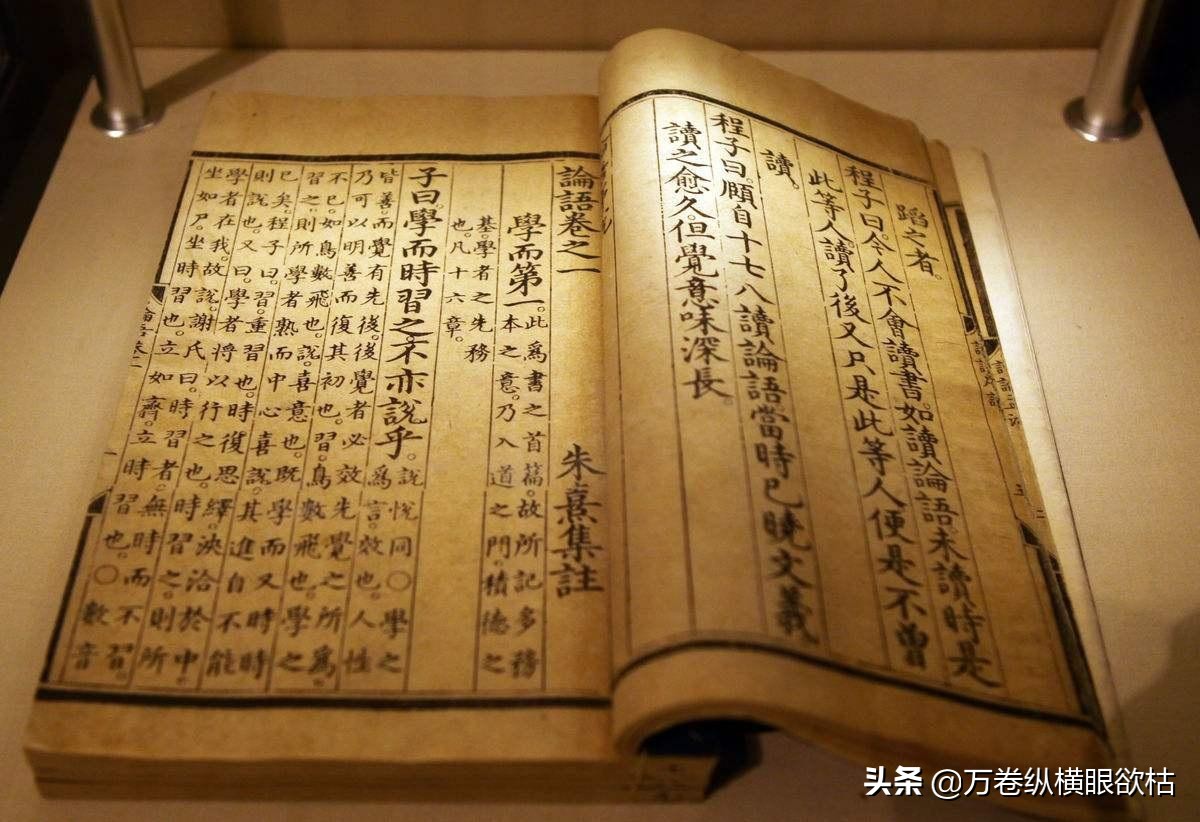 蹈之者。
程子曰。今人不會讀書。如讀論語。未讀時是
此等人。讀了後又只是此等人。便是不曾
讀。
程子曰。頤自十七八讀論語。當時已曉文義
讀之愈久。但覺意味深長。
論語卷之一 朱熹集註
學而第一。此爲書之首篇。故所記多務
本之意。乃入道之門。積德之
基。學者之先務
也。凡十六章。
子曰。學而時習之。不亦說乎。說悅同○學之
爲言效也。人性
皆善。而覺有先後。後覺者。必效先覺之所爲。
乃可以明善而復其初也。習。鳥數飛也。學之
不已。如鳥數飛也。說。喜意也。既學而又時時
習之。則所學者熟。而中心喜說。其進自不能
已矣。程子曰。習。重習也。時復思繹。浹洽於中。
則說也。又曰。學者將以行之也。時習之。則所
學者在我。故說。謝氏曰。時習者。無時而不習。
坐如尸。坐時習也。立如齊。立時習也。○數音
头条 @万卷纵横眼欲枯